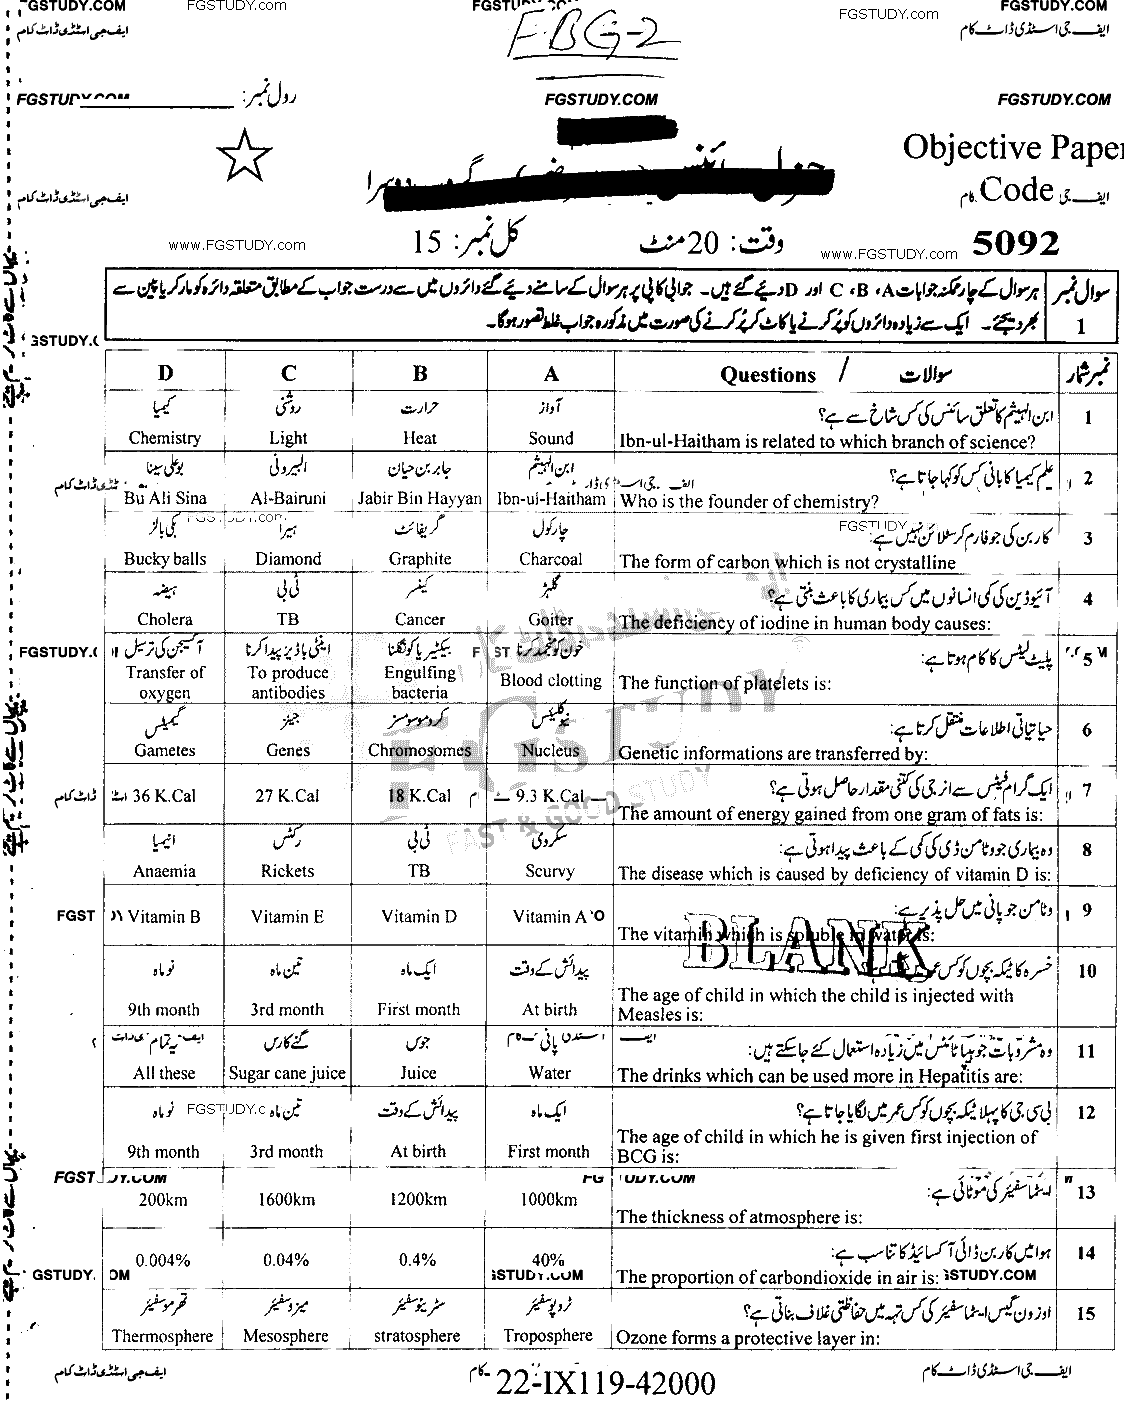 FGSTUDY.COM FGSTUDY.COM FGSTUDY.COM FGSTUDY.COM FGSTUDY.COM
ایف جی اسٹڈی ڈاٹ کام ایف جی اسٹڈی ڈاٹ کام
FBG-2
FGSTUDY.COM رول نمبر: FGSTUDY.COM FGSTUDY.COM
Objective Paper
Code
ایف جی اسٹڈی ڈاٹ کام گروپ دوسرا ایف جی کام
www.FGSTUDY.com کل نمبر: 15 وقت: 20 منٹ www.FGSTUDY.com 5092
سوال نمبر 1 ہر سوال کے چار ممکنہ جوابات A، B، C اور D دیے گئے ہیں۔ جوابی کاپی پر ہر سوال کے سامنے دیے گئے دائروں میں سے درست جواب کے مطابق متعلقہ دائرہ کو مارکر یا پین سے
بھر دیجئے۔ ایک سے زیادہ دائروں کو پُر کرنے یا کاٹ کر پُر کرنے کی صورت میں مذکورہ جواب غلط تصور ہوگا۔
D C B A Questions / سوالات نمبر شمار
کیمیا روشنی حرارت آواز ابن الہیثم کا تعلق سائنس کی کس شاخ سے ہے؟ 1
Chemistry Light Heat Sound Ibn-ul-Haitham is related to which branch of science?
بوعلی سینا البیرونی جابر بن حیان ابن الہیثم علم کیمیا کا بانی کس کو کہا جاتا ہے؟ 2
Bu Ali Sina Al-Bairuni Jabir Bin Hayyan Ibn-ul-Haitham Who is the founder of chemistry?
بکی بالز ہیرا گریفائٹ چارکول کاربن کی جو فارم کرسٹلائن نہیں ہے: 3
Bucky balls Diamond Graphite Charcoal The form of carbon which is not crystalline
ہیضہ ٹی بی کینسر گلہڑ آئیوڈین کی کمی انسانوں میں کس بیماری کا باعث بنتی ہے؟ 4
Cholera TB Cancer Goiter The deficiency of iodine in human body causes:
آکسیجن کی ترسیل اینٹی باڈیز پیدا کرنا بیکٹیریا کو نگلنا خون کو منجمد کرنا پلیٹ لیٹس کا کام ہوتا ہے: 5
Transfer of oxygen To produce antibodies Engulfing bacteria Blood clotting The function of platelets is:
گیمیٹس جینز کروموسومز نیوکلیئس حیاتیاتی اطلاعات منتقل کرتا ہے: 6
Gametes Genes Chromosomes Nucleus Genetic informations are transferred by:
36 K.Cal 27 K.Cal 18 K.Cal 9.3 K.Cal ایک گرام فیٹس سے انرجی کی کتنی مقدار حاصل ہوتی ہے؟ 7
The amount of energy gained from one gram of fats is:
انیمیا رکٹس ٹی بی سکروی وہ بیماری جو وٹامن ڈی کی کمی کے باعث پیدا ہوتی ہے: 8
Anaemia Rickets TB Scurvy The disease which is caused by deficiency of vitamin D is:
Vitamin B Vitamin E Vitamin D Vitamin A وٹامن جو پانی میں حل پذیر ہے: 9
The vitamin which is soluble in water is:
BLANK
نو ماہ تین ماہ ایک ماہ پیدائش کے وقت خسرہ کا ٹیکہ بچوں کو کس 10
9th month 3rd month First month At birth The age of child in which the child is injected with Measles is:
یہ تمام گنے کا رس جوس پانی وہ مشروبات جو ہیپاٹائٹس میں زیادہ استعمال کئے جا سکتے ہیں: 11
All these Sugar cane juice Juice Water The drinks which can be used more in Hepatitis are:
نو ماہ تین ماہ پیدائش کے وقت ایک ماہ بی سی جی کا پہلا ٹیکہ بچوں کو کس عمر میں لگایا جاتا ہے؟ 12
9th month 3rd month At birth First month The age of child in which he is given first injection of BCG is:
200km 1600km 1200km 1000km ایٹماسفیئر کی موٹائی ہے: 13
The thickness of atmosphere is:
0.004% 0.04% 0.4% 40% ہوا میں کاربن ڈائی آکسائیڈ کا تناسب ہے: 14
The proportion of carbondioxide in air is:
تھرموسفیئر میزوسفیئر سٹریٹوسفیئر ٹروپوسفیئر اوزون گیس ایٹماسفیئر کی کس تہہ میں حفاظتی غلاف بناتی ہے؟ 15
Thermosphere Mesosphere stratosphere Troposphere Ozone forms a protective layer in:
ایف جی اسٹڈی ڈاٹ کام 22-IX119-42000 ایف جی اسٹڈی ڈاٹ کام